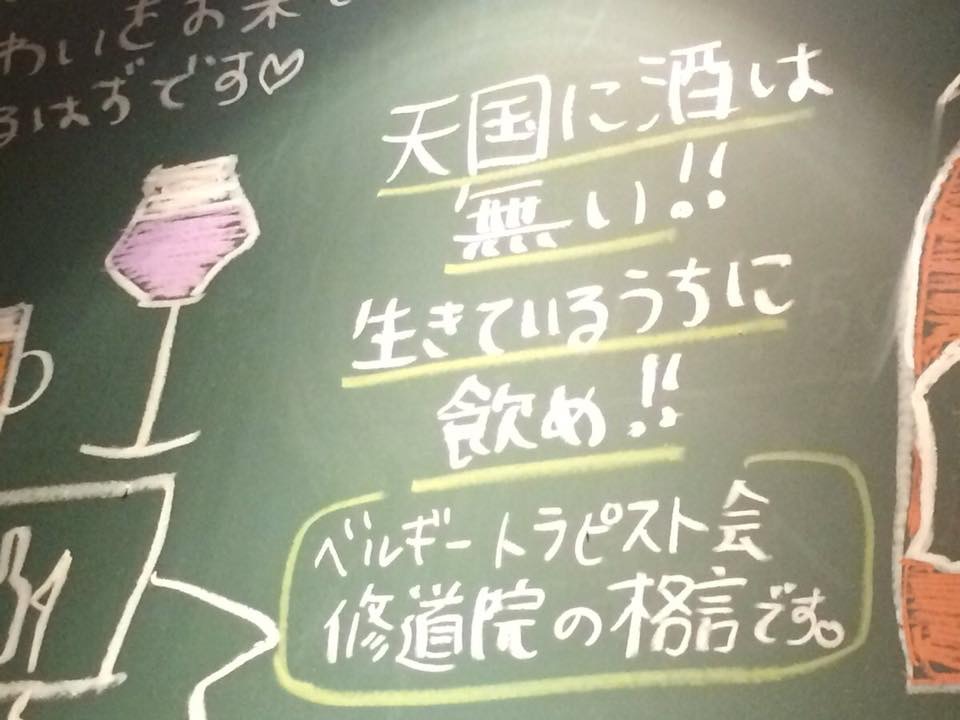 わいをお楽
るはずです♡
天国に酒は
無い!!
生きているうちに
飲め!!
ベルギートラピスト会
修道院の格言です。